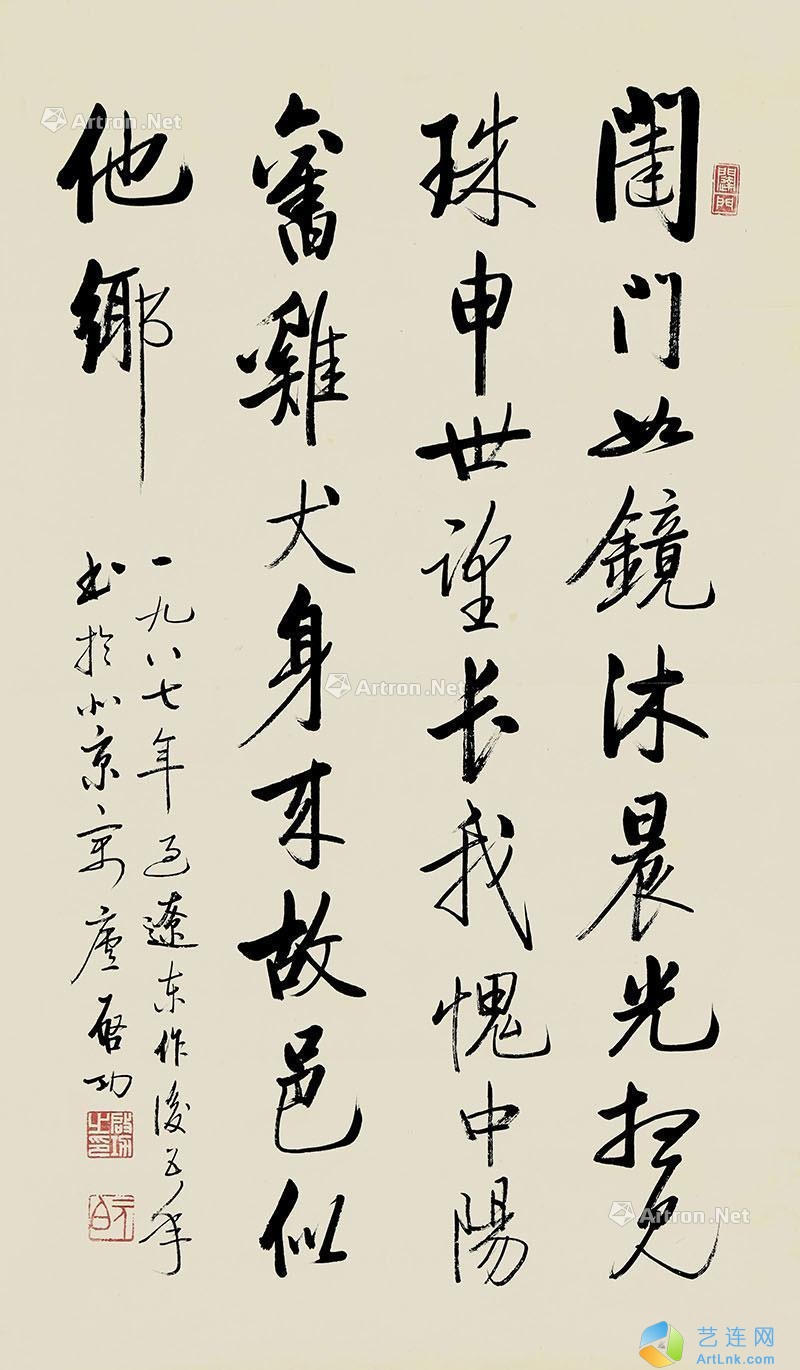 閨門如鏡沐晨光見
珠申世望长我愧中陽
舊雞犬身来故邑似
他鄉
一九八七年过遼东作後五年
书於北京寓廬启功
啟功之印
元白
Artron.Net
Artron.Net
Artron.Net
艺连网
ArtLnk.com